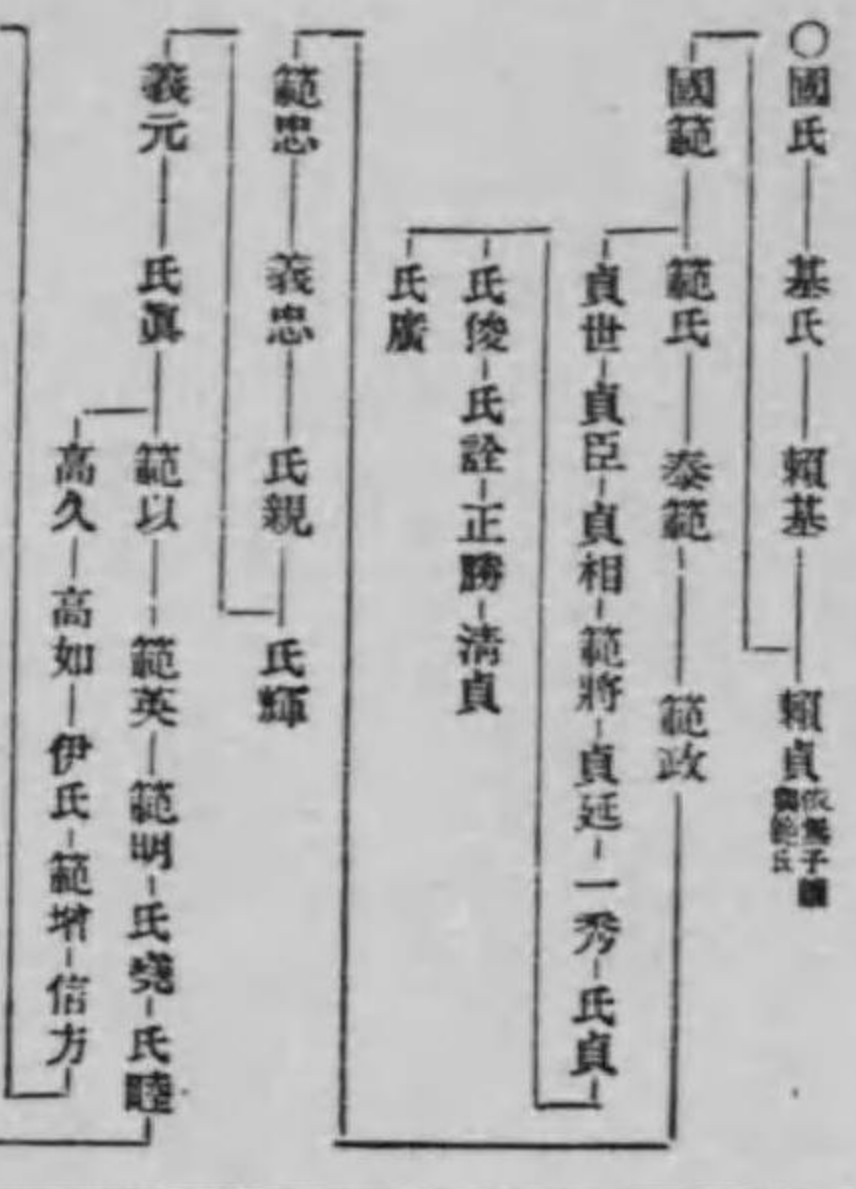 ○國氏―基氏―賴基―賴貞 依無子讓與範氏
國範―範氏―泰範―範政
貞世―貞臣―貞相―範將―貞延―一秀―氏貞
氏俊―氏詮―正勝―淸貞
氏廣
範忠―義忠―氏親―氏輝
義元―氏眞―範以―範英―範明―氏堯―氏睦
高久―高如―伊氏―範增―信方